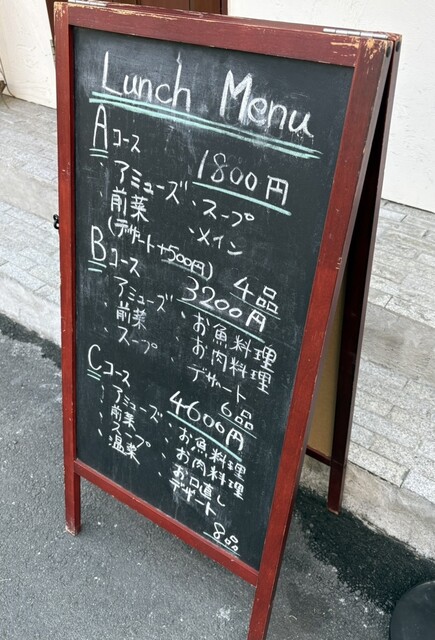 Lunch Menu
Aコース 1800円
・アミューズ ・スープ
・前菜 ・メイン
(デザート+500円) 4品
Bコース 3200円
・アミューズ ・お魚料理
・前菜 ・お肉料理
・スープ ・デザート
6品
Cコース 4600円
・アミューズ ・お魚料理
・前菜 ・お肉料理
・スープ ・お口直し
・温菜 ・デザート
8品